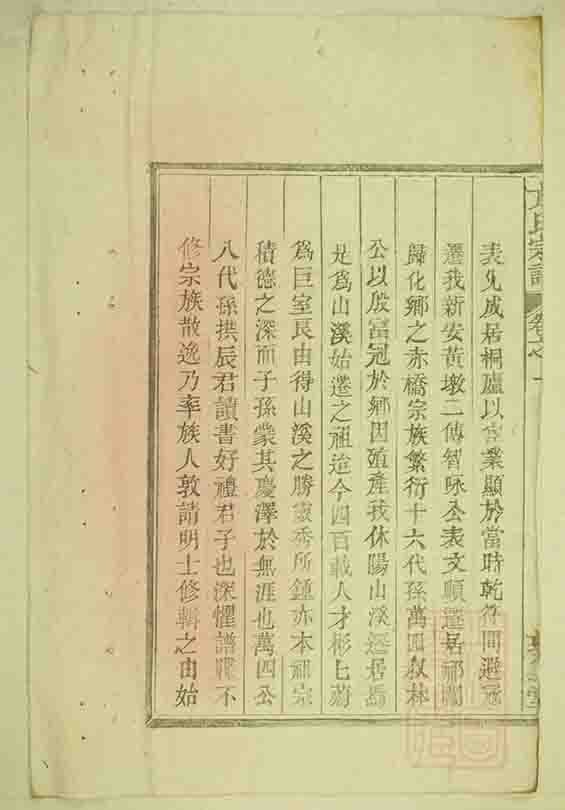 表允成居桐廬以宦業顯於當時乾符間避冦
遷我新安黃墩二傳智咏公表文順遷居祁閶
歸化鄉之赤橋宗族繁衍十六代孫萬四叙林
公以殷富冠於鄉因殖產我休陽山溪遷居焉
是爲山溪始遷之祖迨今四百載人才彬匕蔚
爲巨室良由得山溪之勝靈秀所鍾亦本祖宗
積德之深而子孫蒙其慶澤於無涯也萬四公
八代孫拱辰君讀書好禮君子也深懼譜牒不
修宗族散逸乃率族人敦請明士修輯之由始
氏宗譜 卷之 一